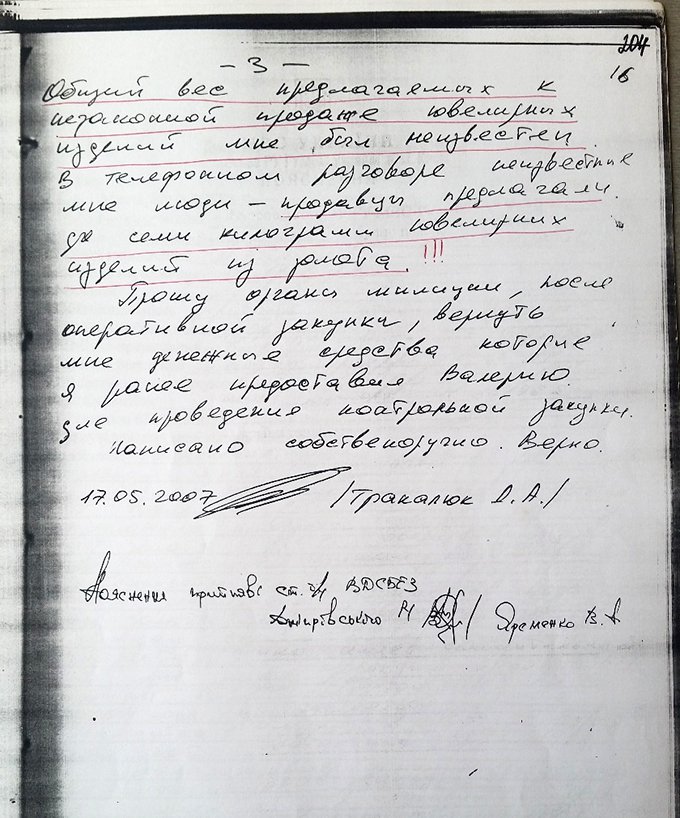 204
16
- 3 -
Общий вес предлагаемых к
незаконной продаже ювелирных
изделий мне был неизвестен.
В телефонном разговоре неизвестные
мне люди – продавцы предлагали
до семи килограмм ювелирных
изделий из золота. !!!
Прошу органы милиции, после
оперативной закупки, вернуть
мне денежные средства которые
я ранее предоставил Валерию
для проведения контрольной закупки.
Написано собственоручно. Верно.
17.05.2007 /Тракалюк Д.А./
Пояснення прийняв ст. о/у ВДСБЕЗ
Дніпровського РУ / Яременко В.А